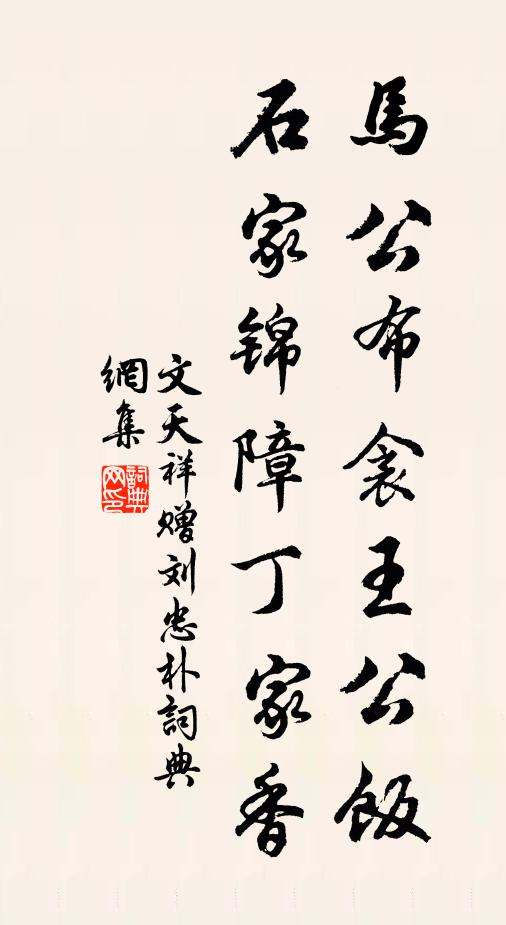 馬公布衾王公飯
石家锦障丁家香
文天祥赠刘忠朴詞典
網集
詞典
网印